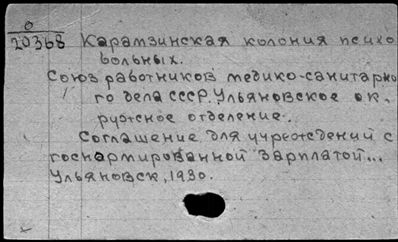 0
20368 Карамзинская колония психо
больных.
Союз работников медико-санитарно
го дела СССР. Ульяновское ок.
ружное отделение.
Соглашение для учреждений с
госнармированной зарплатой...
Ульяновск, 1930.